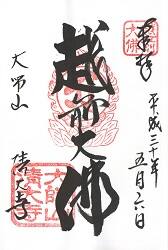 奉拝
平成三十年
五月六日
越前大佛
大師山
清大寺
大師山
清大寺